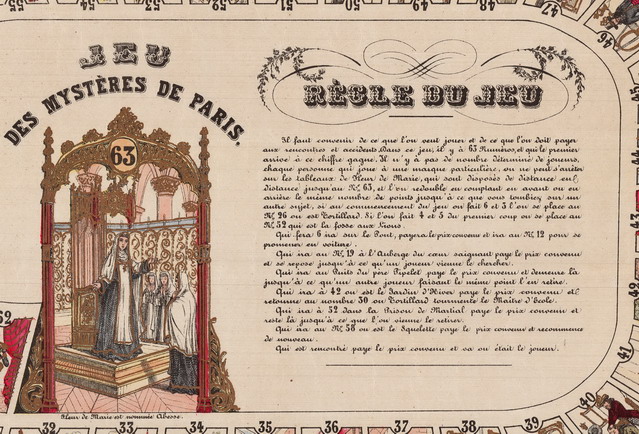 55 54 53 52 51 50 49 48 47
46
45
JEU
DES MYSTÈRES DE PARIS.
63
RÈGLE DU JEU
Il faut convenir de ce que l'on veut jouer et de ce que l'on doit payer
aux rencontres et accidents. Dans ce jeu, il y à 63 Numéros, et qui le premier
arrive à ce chiffre gagne. Il n'y à pas de nombre déterminé de joueurs,
chaque personne qui joue à une marque particulière, on ne peut s'arrêter
sur les tableaux de Fleur de Marie, qui sont disposés de distance en
distance jusqu'au Nº 63, et l'on redouble en comptant en avant ou en
arrière le même nombre de points jusqu'à ce que vous tombiez sur un
autre sujet, si au commencement du jeu on fait 6 et 3 l'on se place au
Nº 26 ou est Tortillard. Si l'on fait 4 et 5 du premier coup on se place au
Nº 52 qui est la fosse aux Lions.
Qui fera 6 ira sur le Pont, payera le prix convenu et ira au Nº 12 pour se
promener en voiture.
Qui ira au Nº 19 à l'Auberge du cœur saignant paye le prix convenu
et se repose jusqu'à ce qu'un joueur vienne le chercher.
Qui ira au Puits du père Pipelet paye le prix convenu et demeure là
jusqu'à ce qu'un autre joueur faisant le même point l'en retire.
Qui ira à 42 ou est le Jardin d'Hiver paye le prix convenu et
retourne au nombre 30 ou Tortillard tourmente le Maître d'école.
Qui ira à 52 dans la Prison de Martial paye le prix convenu et
reste là jusqu'à ce que l'on vienne le retirer.
Qui ira au Nº 58 ou est le Squelette paye le prix convenu et recommence
de nouveau.
Qui est rencontré paye le prix convenu et va ou était le joueur.
Fleur de Marie est nommée Abesse.
62
44
43
42
41
40
32 33 34 35 36 37 38 39